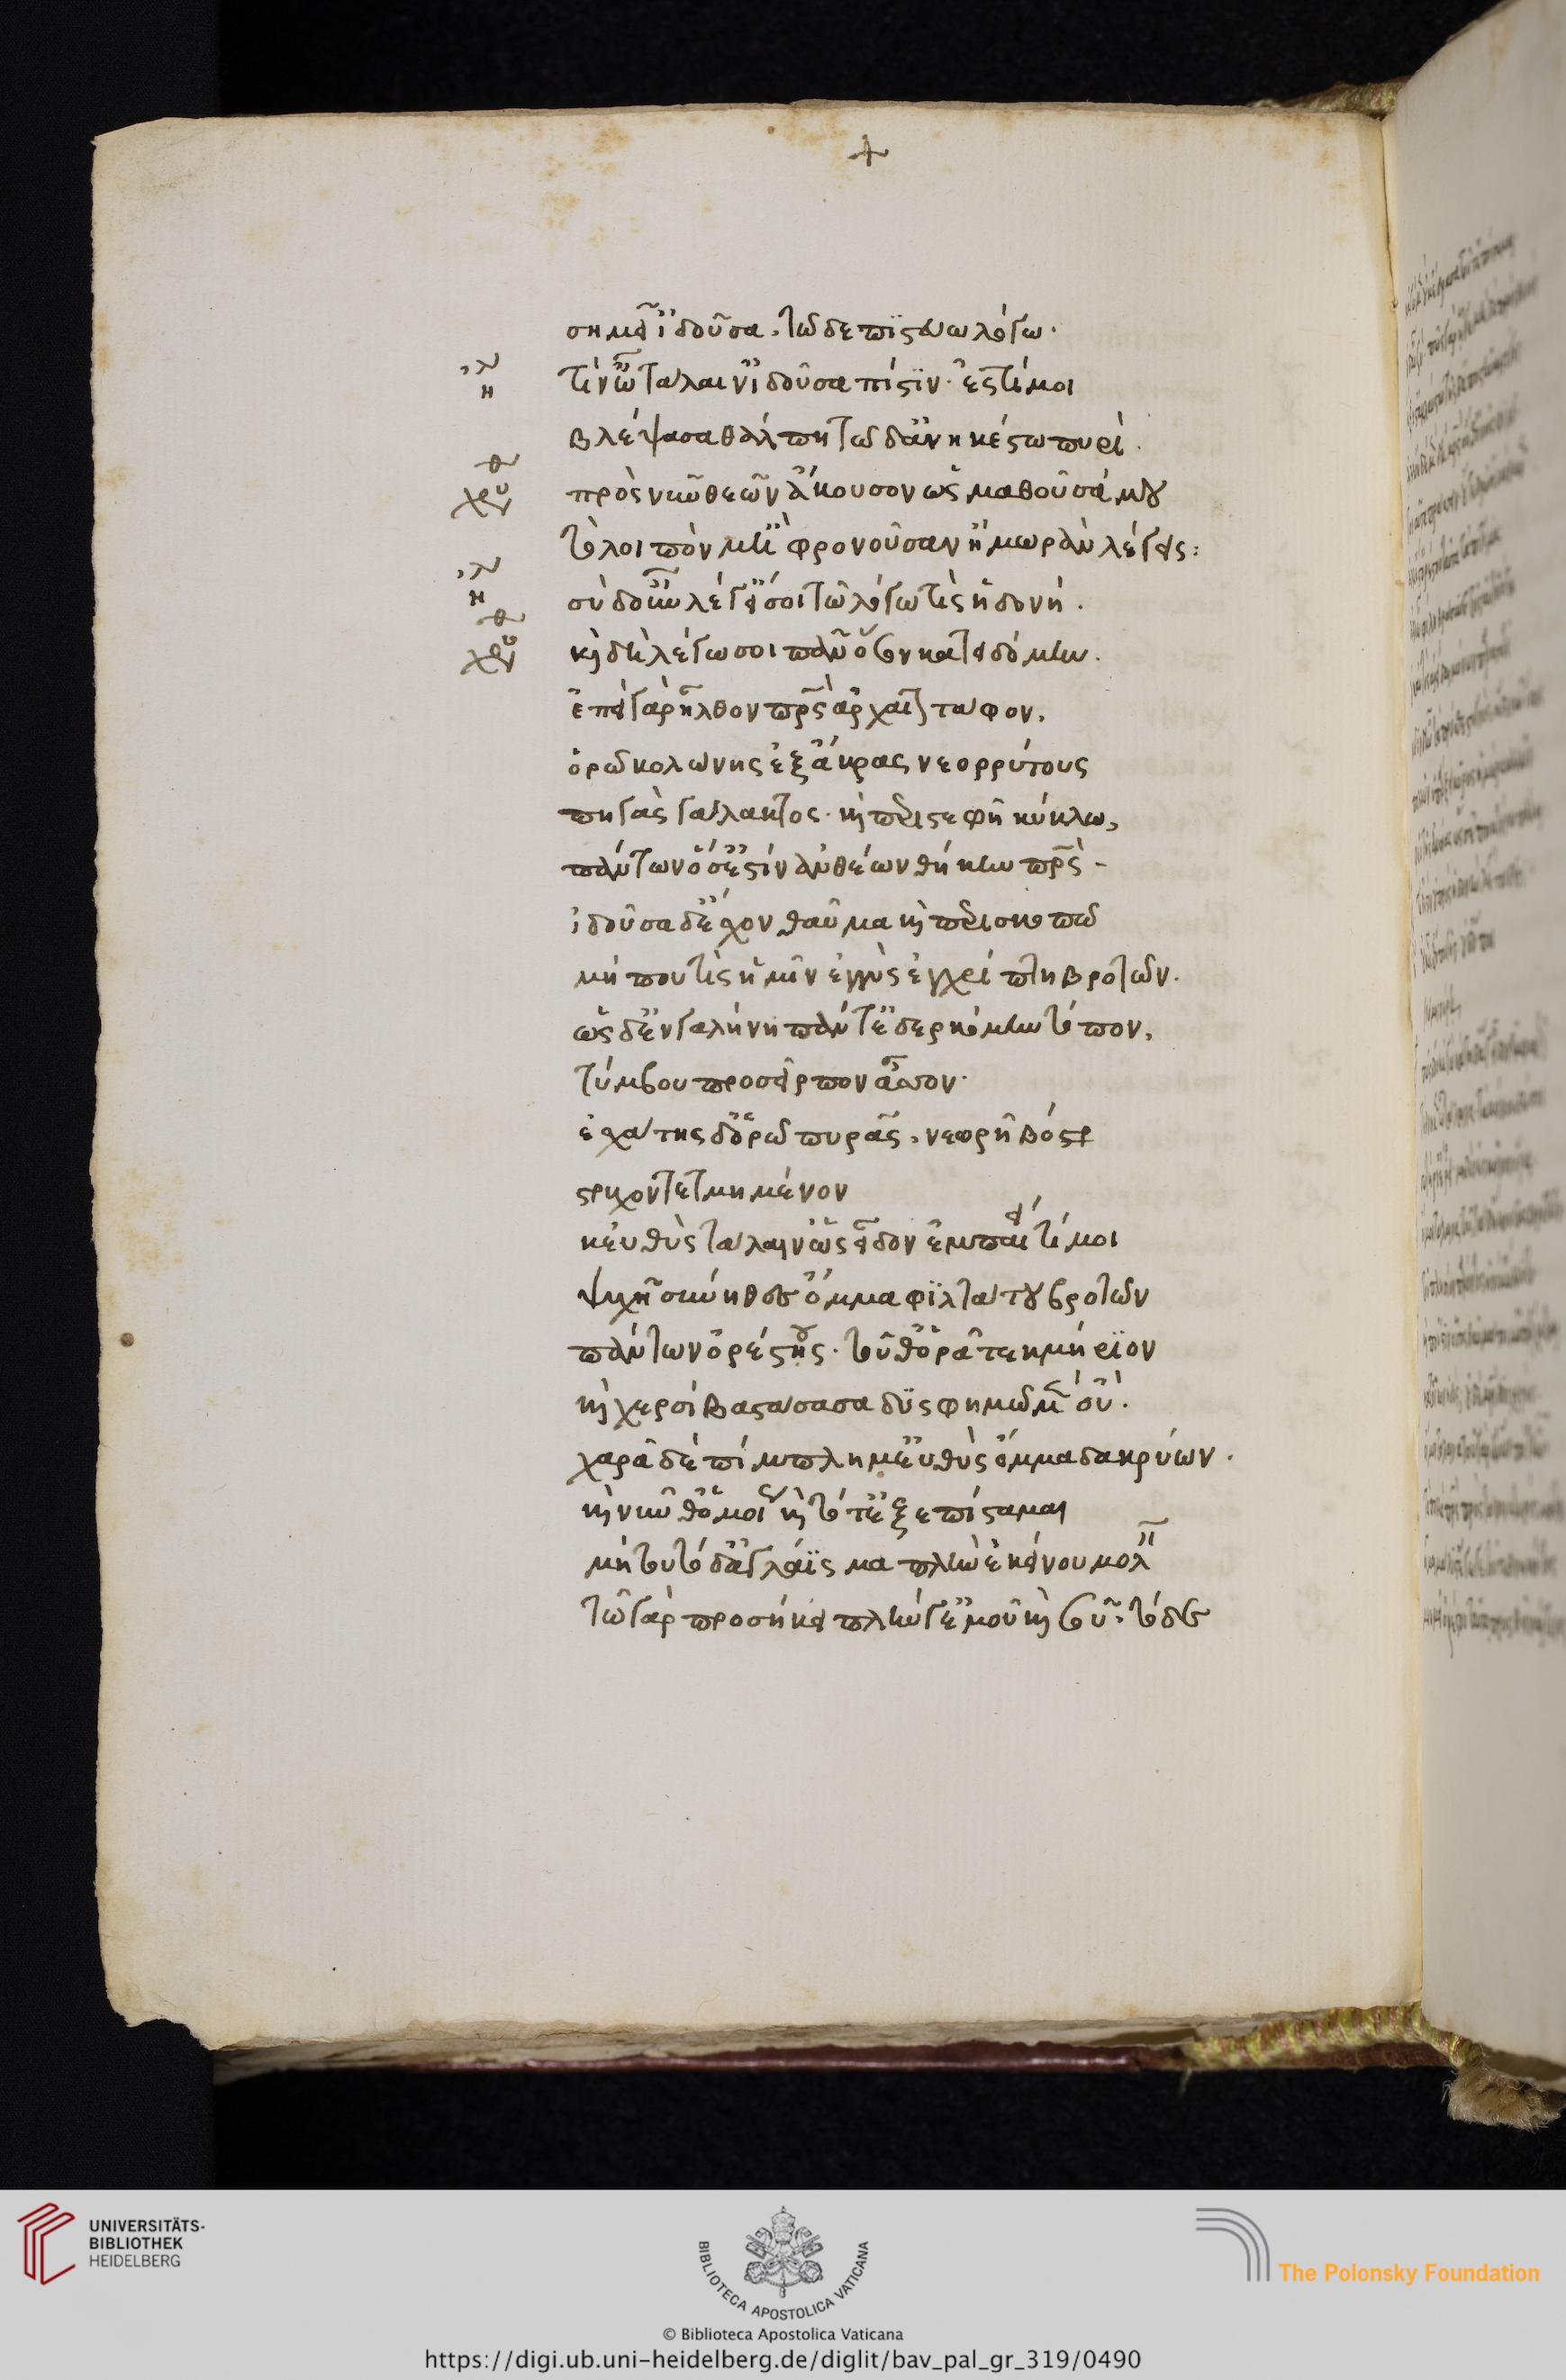 +
σημεῖ ἰδοῦσα, τῶδε πιστεύω λόγω·
ἠλ τίν ὦ τάλαιν ἰδοῦσα πίστιν· ἐς τί μοι
βλέψασα θάλπη τῶδ ἀνηκέστω πυρί·
χρυσοθ πρός νυν θεῶν ἄκουσον ὡς μαθοῦσά μου
τὸ λοιπόν μ ἢ φρονοῦσαν ἢ μωρὰν λέγεις:
ἠλ σὺ δ οὖν λέγ εἴ σοι τῶ λόγω τὶς ἡδονή.
χρυσοθ καὶ δὴ λέγω σοι πᾶν ὅσον κατειδόμην.
ἐπεὶ γὰρ ἦλθον πρς ἀρχαῖον τάφον,
ὁρῶ κολώνης ἐξ ἄκρας νεορρύτους
πηγὰς γάλακτος· καὶ περιστεφῆ κύκλω,
πάντων ὅσ ἐστὶν ἀνθέων θήκην πρς·
ἰδοῦσα δ ἔσχον θαῦμα καὶ περισκοπῶ
μή που τὶς ἡμῖν ἐγγὺς ἐγχρίπτη βροτῶν.
ὡς δ ἐν γαλήνη πάντ ἐδερκόμην τόπον,
τύμβου προσεῖρπον ἆσσον·
ἐσχάτης δ ὁρῶ πυρᾶς, νεωρῆ βόστρ
τρυχον τετμημένον
κεὐθὺς τάλαιν ὡς εἶδον ἐμπαίει τί μοι
ψυχῆ σύνηθες ὄμμα φιλτάτου βροτῶν
πάντων ὀρέστου· τοῦθ ὁρᾶ τεκμήριον
καὶ χερσὶ βαστάσασα δυσφημῶ μὲν οὔ·
χαρᾶ δὲ πίμπλημ εὐθὺς ὄμμα δακρύων·
καὶ νῦν θ ὁμοίως καὶ τότ ἐξεπίσταμαι
μὴ τοῦ τόδ ἀγλάισμα πλὴν ἐκείνου μολεῖν
τῶ γὰρ προσήκει πλήν γ ἐμοῦ καὶ σοῦ· τόδε
UNIVERSITÄTS-
BIBLIOTHEK
HEIDELBERG
BIBLIOTECA APOSTOLICA VATICANA
The Polonsky Foundation
© Biblioteca Apostolica Vaticana
https://digi.ub.uni-heidelberg.de/diglit/bav_pal_gr_319/0490